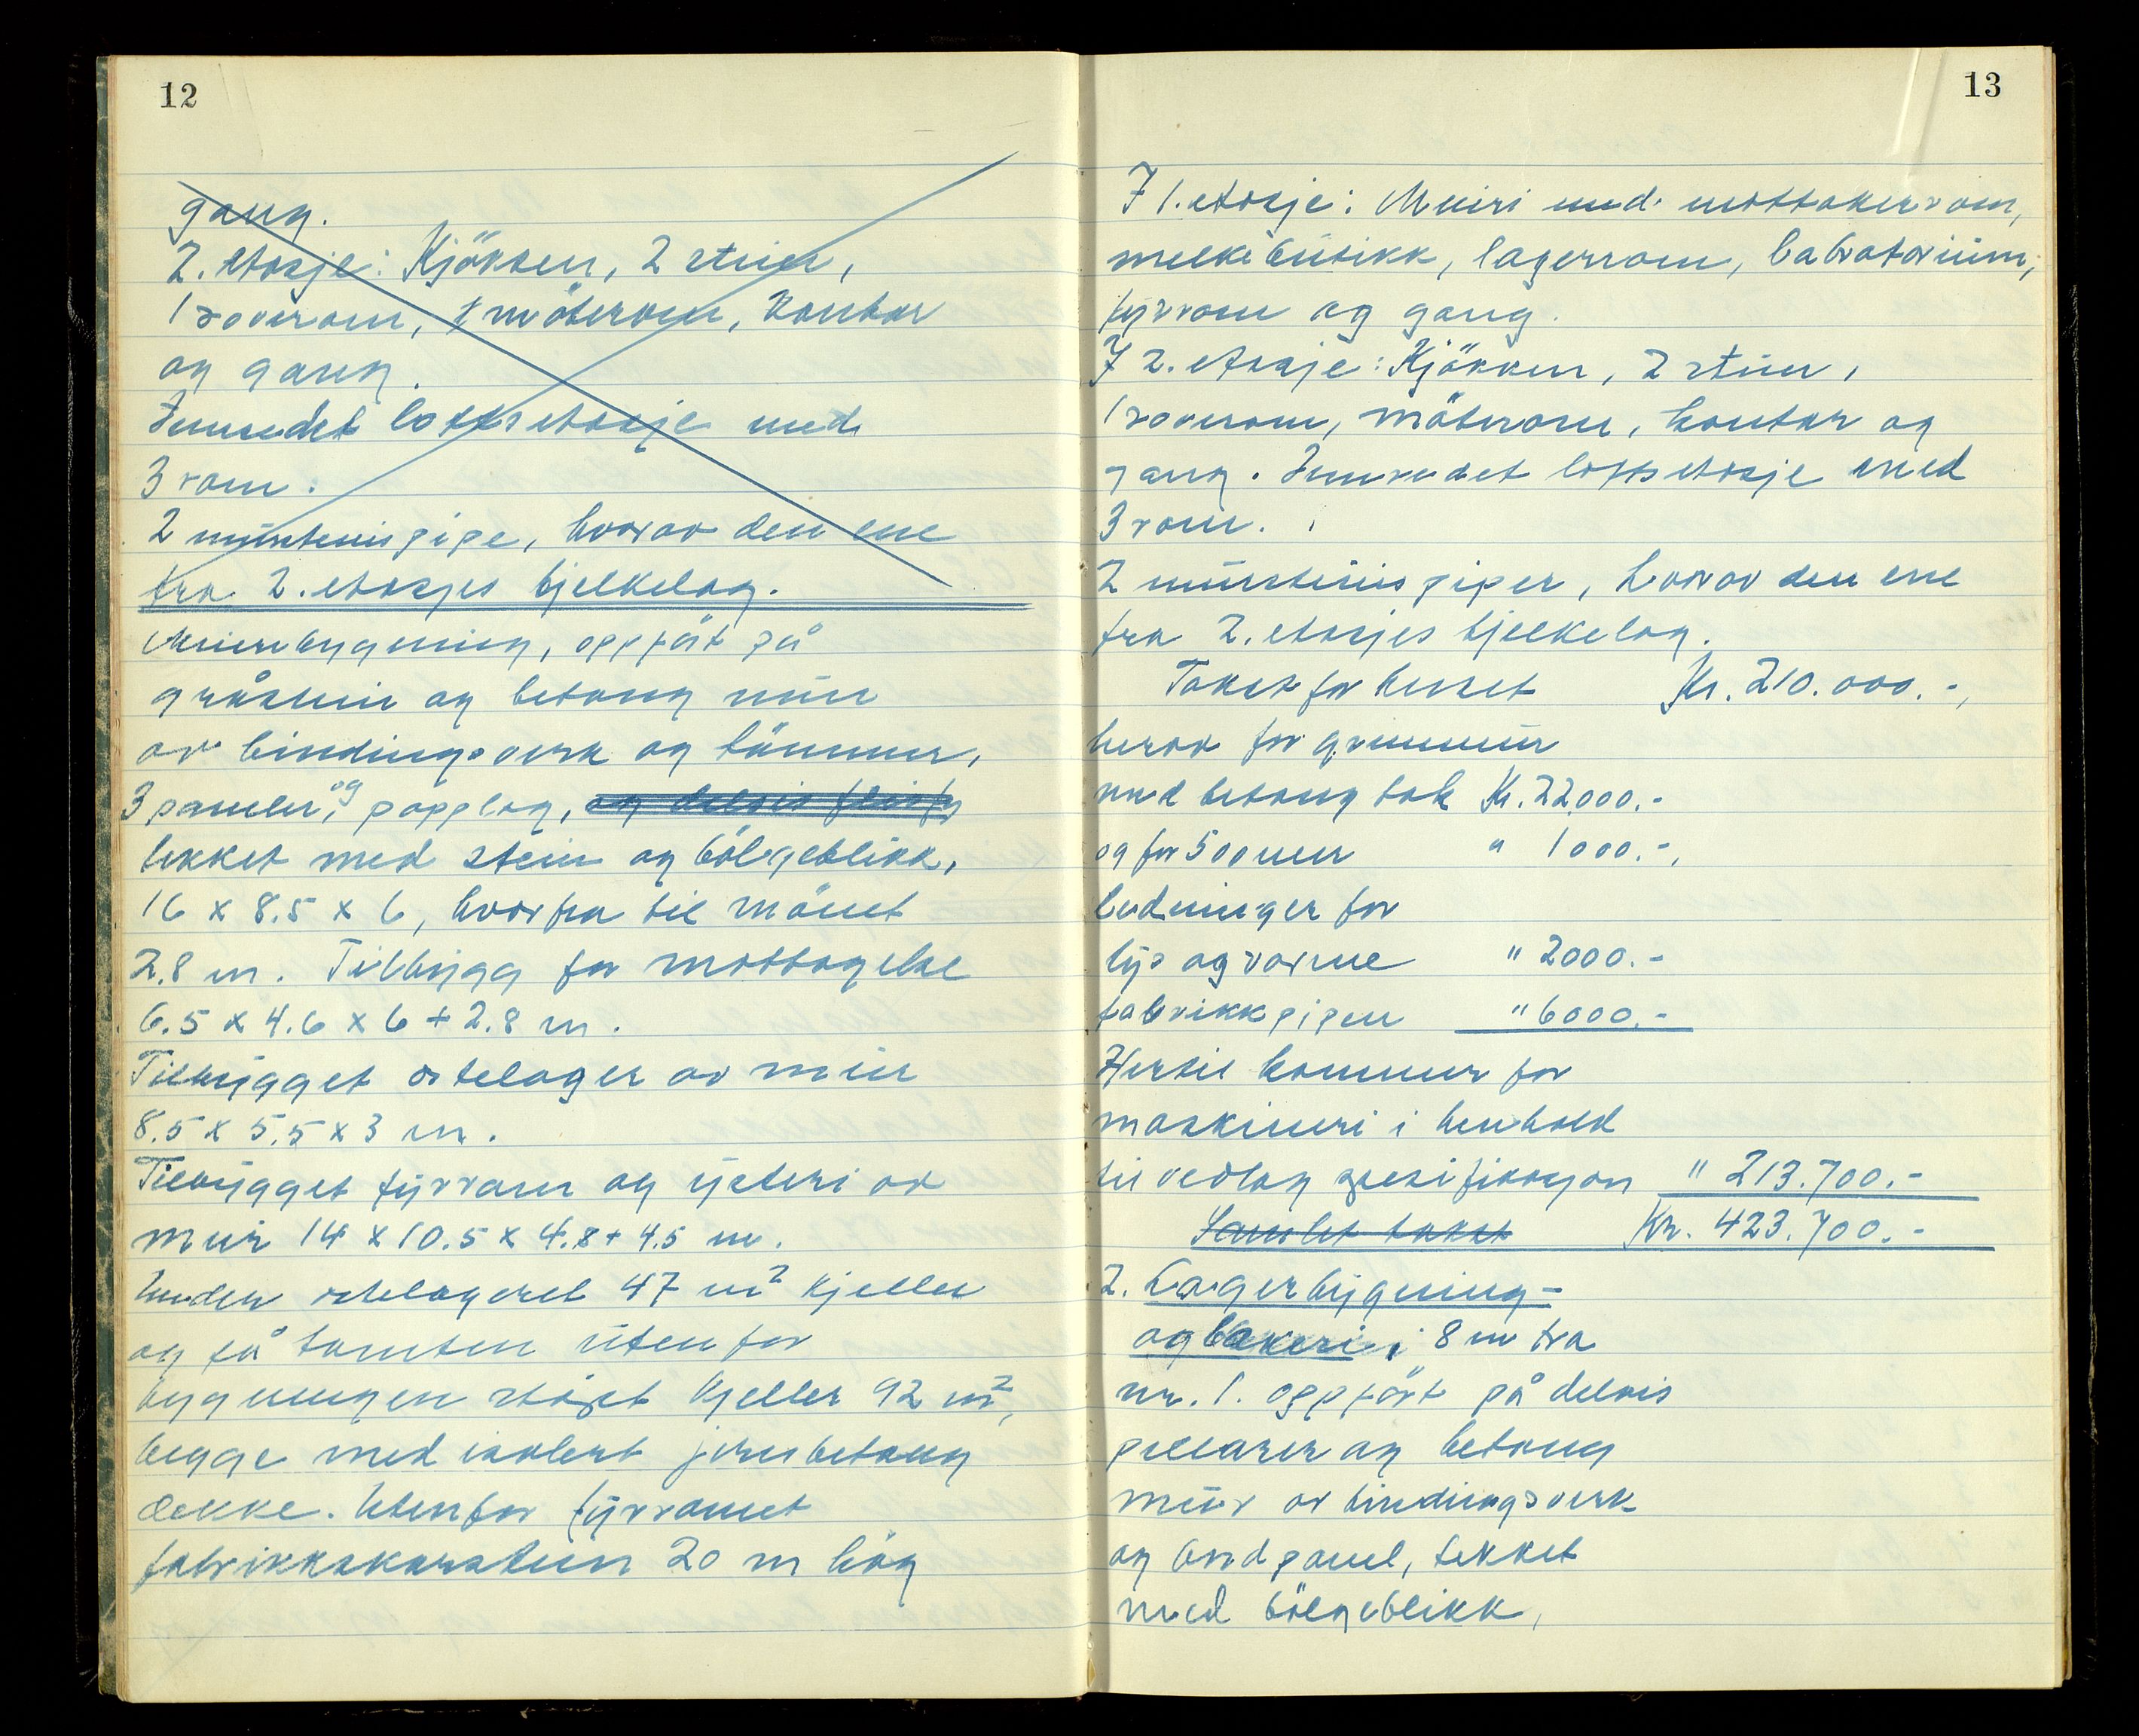 12
gang.
2. etasje: Kjökken, 2 stuer,
1 soverom, 1 möterom, kontor
og gang.
Innredet loftsetasje med
3 rom.
2 murstenspipe, hvorav den ene
fra 2. etasjes bjelkelag.
Meieribygning, oppfört på
gråstein og betong mur
av bindingsverk og tömmer,
3 paneler, og papplag, og delvis
tekket med stein og bölgeblikk,
16 x 8.5 x 6, hvorfra til mönet
2.8 m. Tilbygg for mottagelse
6.5 x 4.6 x 6 + 2.8 m.
Tilbygget ostelager av mur
8.5 x 5.5 x 3 m.
Tilbygget fyrrom og ysteri av
mur 14 x 10.5 x 4.8 + 4.5 m.
Under ostelageret 47 m2 kjeller
og på tomten utenfor
bygningen stöpt kjeller 92 m2,
begge med isolert jernbetong
dekke. Utenfor fyrromet
fabrikkskorstein 20 m hög
13
I 1. etasje: Meieri med mottakerrom,
melkebutikk, lagerrom, labratorium,
fyrrom og gang.
I 2. etasje: Kjökken, 2 stuer,
1 soverom, möterom, kontor og
gang. Innredet loftsetasje med
3 rom.
2 murstenspiper, hvorav den ene
fra 2. etasjes bjelkelag.
Takst for huset Kr. 210.000.-,
herav for grunnmur
med betong tak Kr. 22.000.-
og for Soonen " 1000.-,
ledninger for
lys og varme " 2000.-
fabrikkpipen " 6000.-
Hertil kommer for
maskineri i henhold
til vedlag spesifikasjon " 213.700.-
Samlet takst Kr. 423.700.-
2. Lagerbygning-
og bakeri, 8 m fra
nr. 1. oppfört på delvis
pillarer og betong
mur av bindingsverk
og bordpanel, tekket
med bölgeblikk,